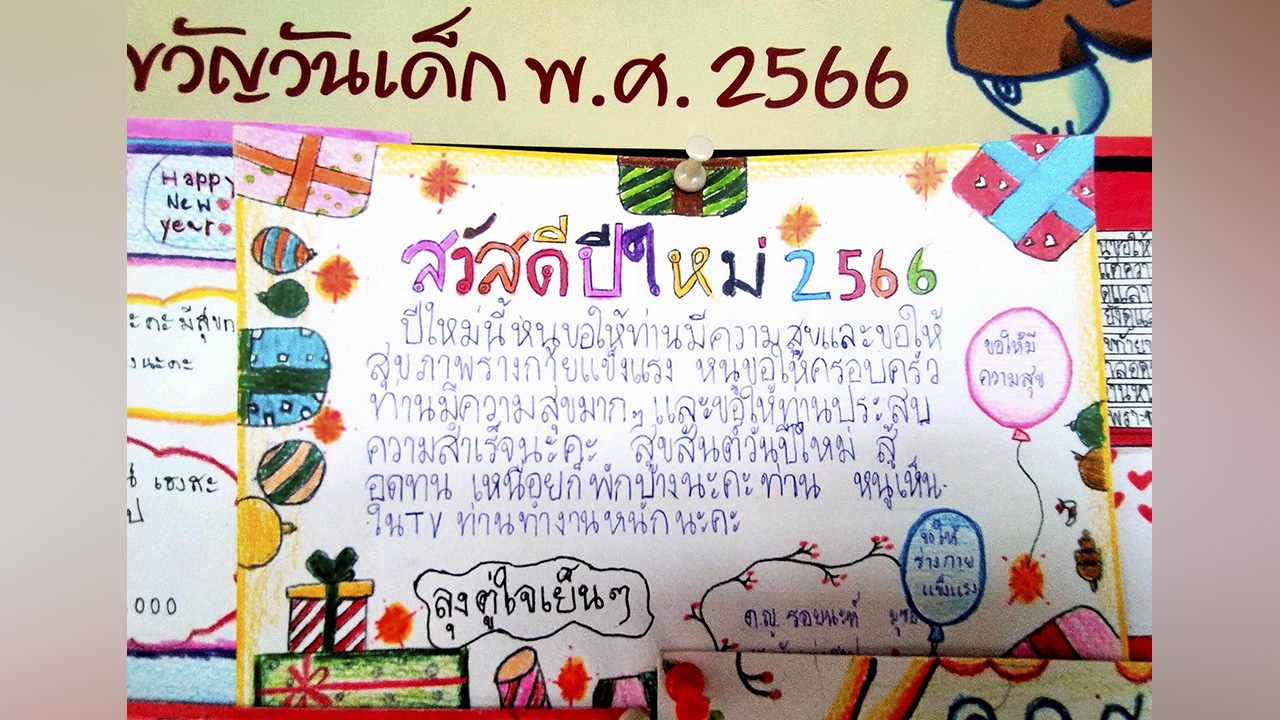 ขวัญวันเด็ก พ.ศ. 2566
Happy
New
year
สวัสดีปีใหม่ 2566
ปีใหม่นี้หนูขอให้ท่านมีความสุขและขอให้
สุขภาพร่างกายแข็งแรง หนูขอให้ครอบครัว
ท่านมีความสุขมากๆ และขอให้ท่านประสบ
ความสำเร็จนะคะ สุขสันต์วันปีใหม่ สู้
อดทน เหนื่อยก็พักบ้างนะคะท่าน หนูเห็น
ในTV ท่านทำงานหนักนะคะ
ขอให้มี
ความสุข
ขอให้
ร่างกาย
แข็งแรง
ลุงตู่ใจเย็นๆ
ด.ญ. รอยนะห์
ะคะ มีสุข
นะคะ
000